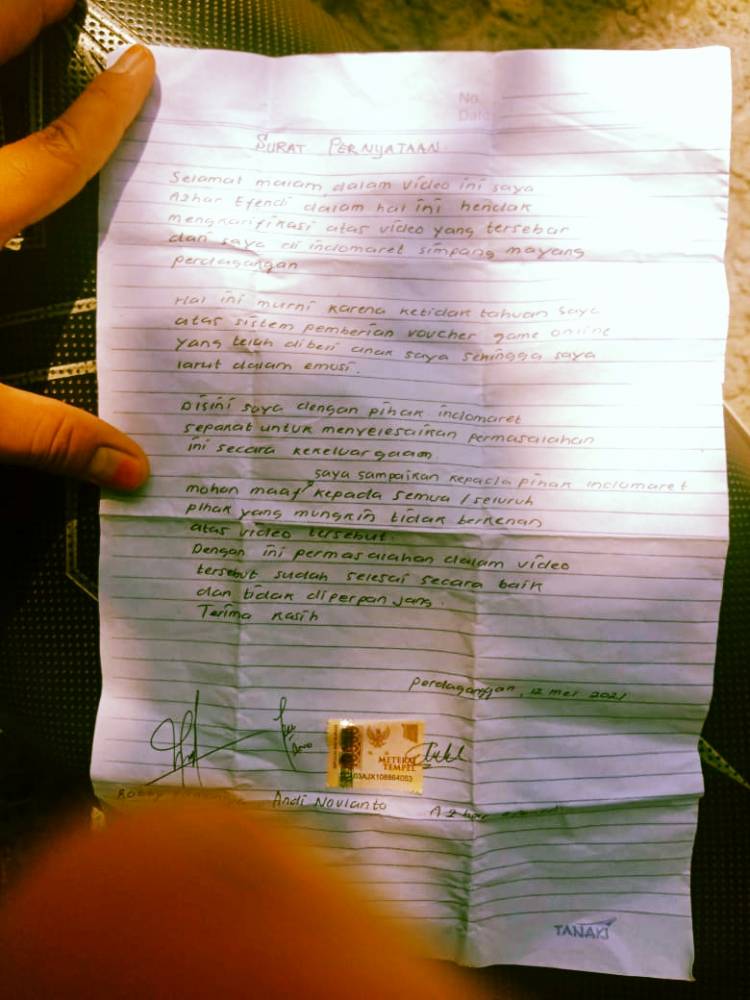 No.
Date
SURAT PERNYATAAN
Selamat malam, dalam video ini saya
Azhar Efendi dalam hal ini hendak
mengkarifikasi atas video yang tersebar
dari saya di indomaret simpang mayang
perdagangan
Hal ini murni karena ketidak tahuan saya
atas sistem pemberian voucher game online
yang telah diberi anak saya sehingga saya
larut dalam emusi.
Disini saya dengan pihak indomaret
sepakat untuk menyelesaikan permasalahan
ini secara kekeluargaan.
saya sampaikan kepada pihak indomaret
mohon maaf kepada semua / seluruh
pihak yang mungkin tidak berkenan
atas video tersebut.
Dengan ini permasalahan dalam video
tersebut sudah selesai secara baik
dan tidak diperpanjang.
Terima kasih
perdagangan, 12 mei 2021
METERAI
TEMPEL
03AJX108864053
Andi Novianto
Azhar
TANAKI